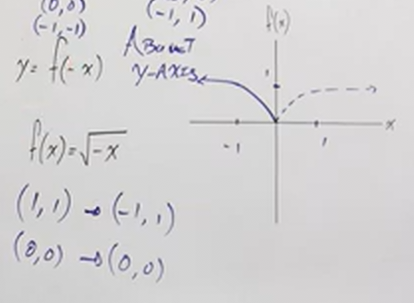 (0,0)
(-1,-1)
(-1, 1)
y = f(-x)
ABOUT
Y-AXIS
f(x) = √-x
(1,1) → (-1,1)
(0,0) → (0,0)
f(x)
1
-1
1
x